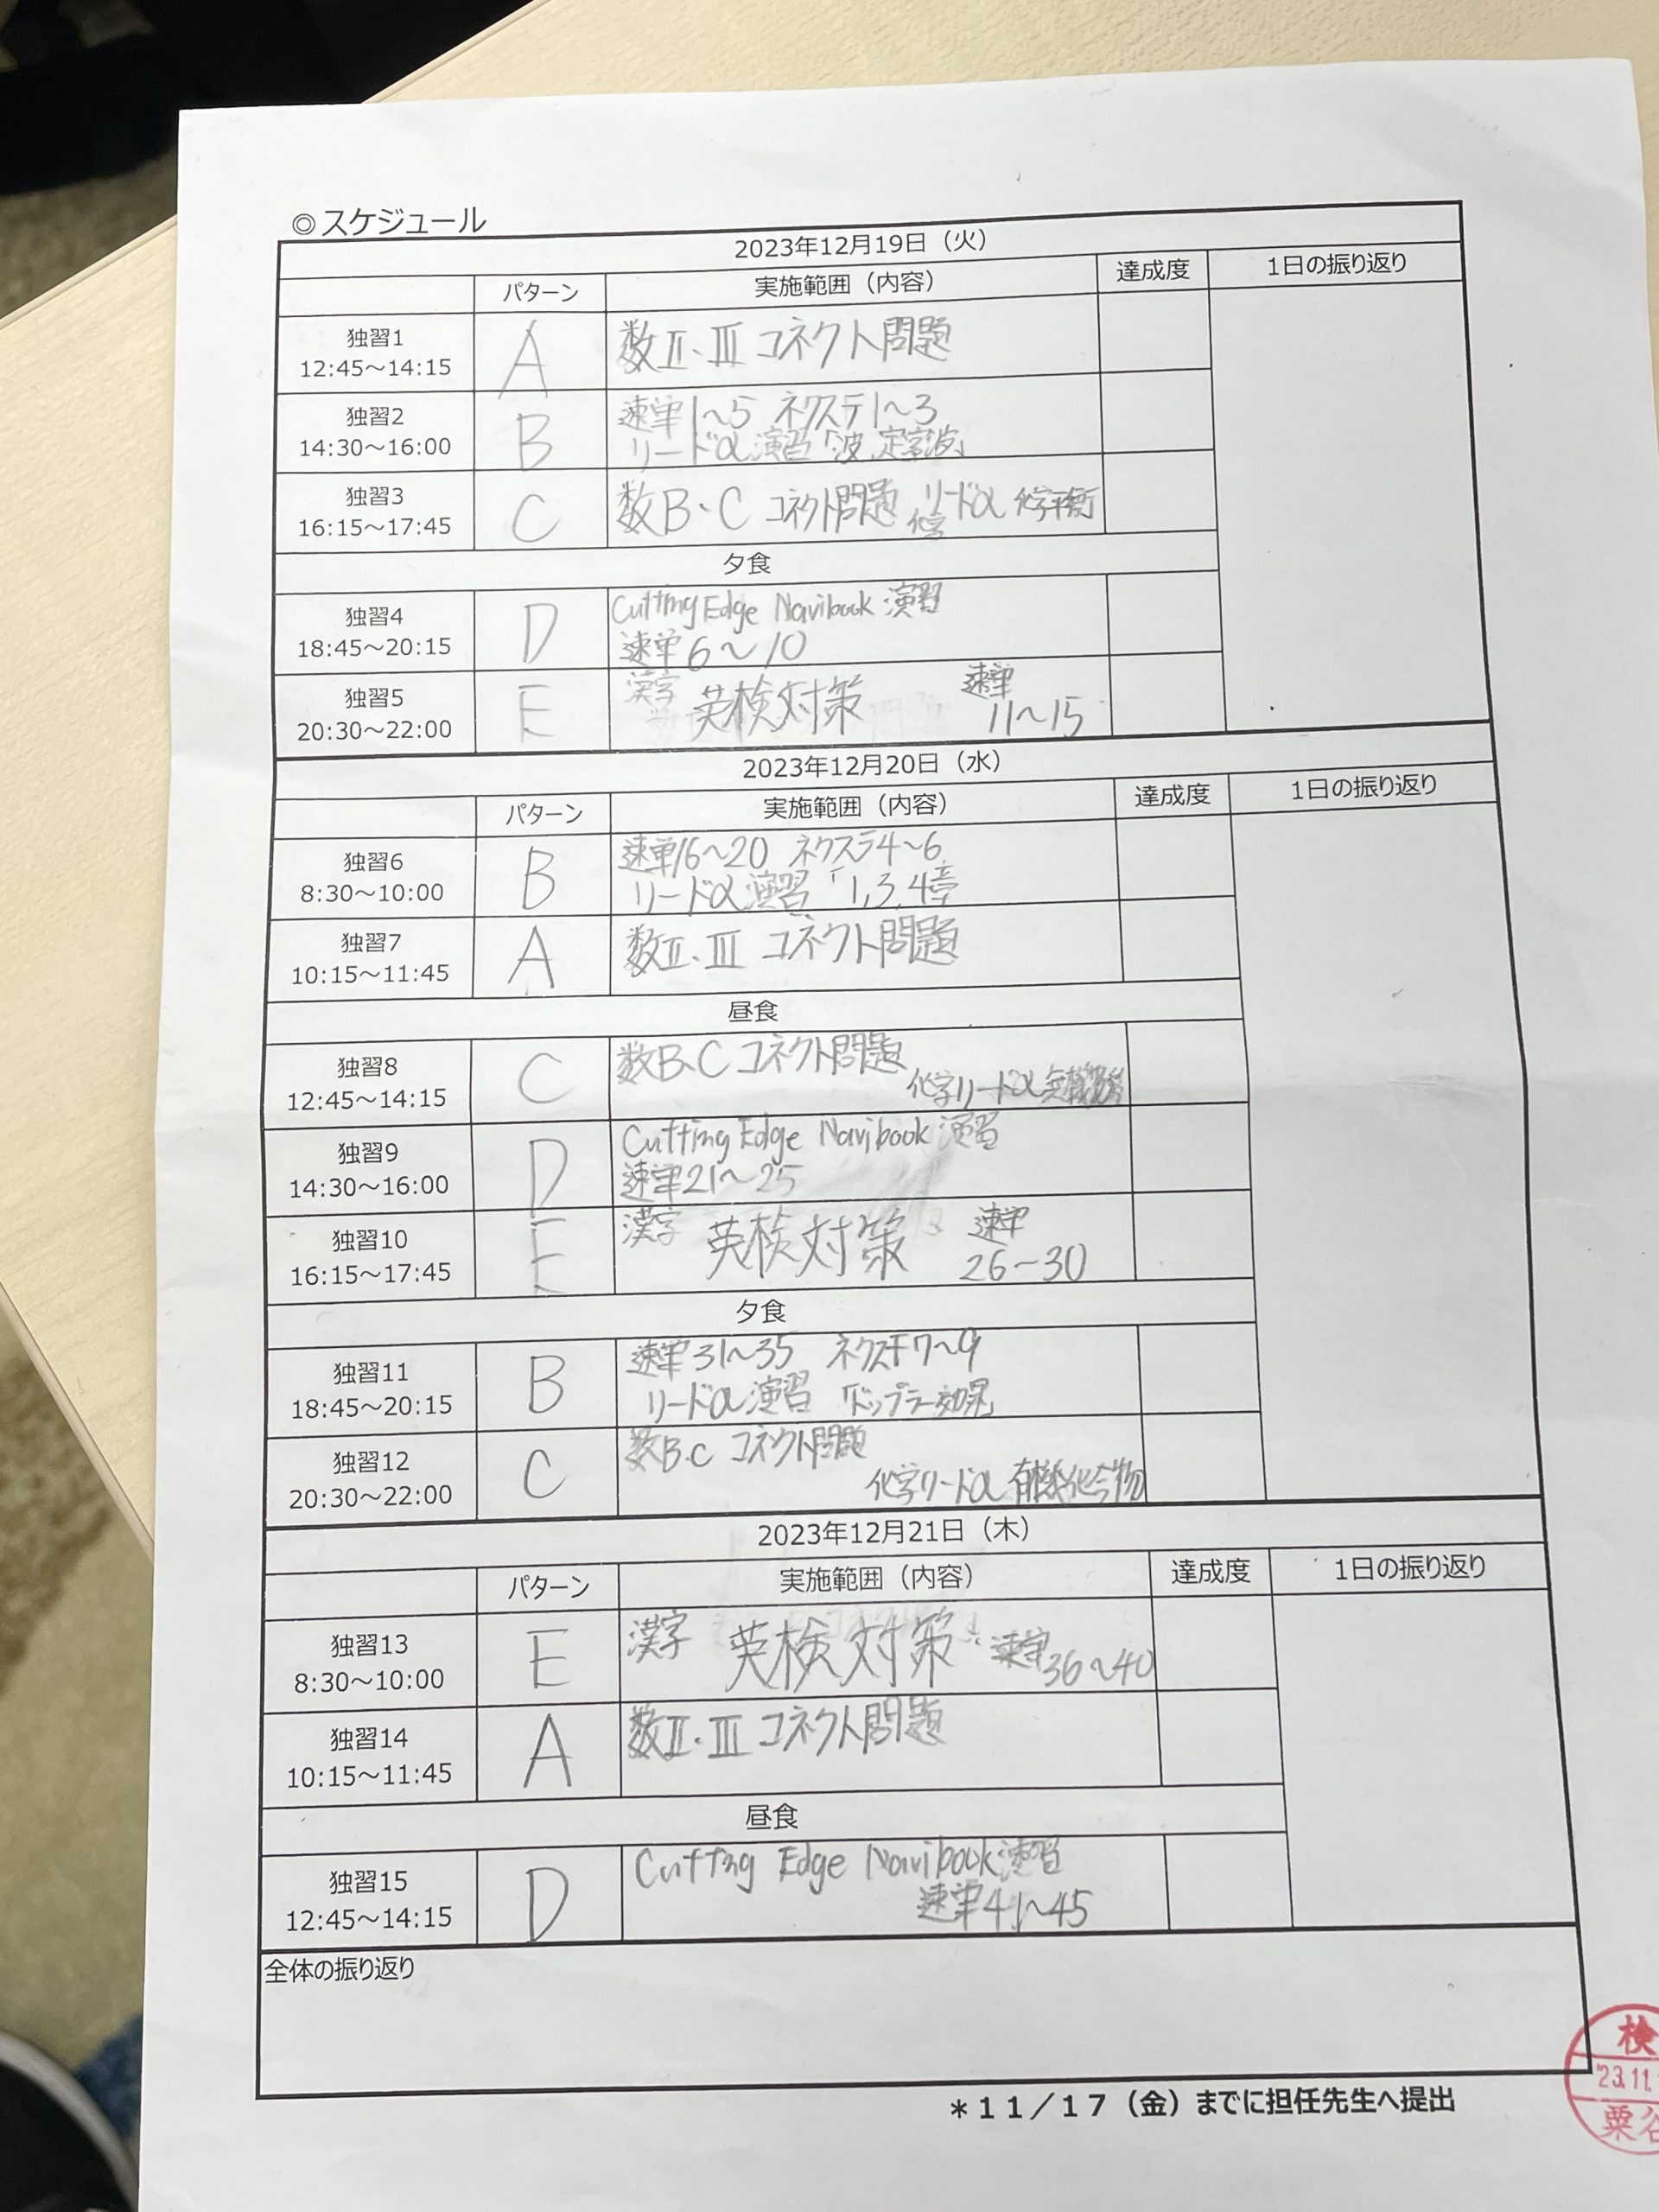 ◎スケジュール
2023年12月19日（火）
パターン 実施範囲（内容） 達成度 1日の振り返り
独習1
12:45～14:15
A
数Ⅱ・Ⅲ コネクト問題
独習2
14:30～16:00
B
速単1～5 ネクステ1～3
リードα演習「波、定常波」
独習3
16:15～17:45
C
数B・C コネクト問題 リードα 化学平衡
化学
夕食
独習4
18:45～20:15
D
Cutting Edge Navibook 演習
速単6～10
独習5
20:30～22:00
E
漢字 英検対策 速単
11～15
2023年12月20日（水）
パターン 実施範囲（内容） 達成度 1日の振り返り
独習6
8:30～10:00
B
速単16～20 ネクステ4～6
リードα演習「1,3,4章
独習7
10:15～11:45
A
数Ⅱ・Ⅲ コネクト問題
昼食
独習8
12:45～14:15
C
数B・C コネクト問題
化学リードα
独習9
14:30～16:00
D
Cutting Edge Navibook 演習
速単21～25
独習10
16:15～17:45
E
漢字 英検対策 速単
26～30
夕食
独習11
18:45～20:15
B
速単31～35 ネクステ7～9
リードα演習「ドップラー効果」
独習12
20:30～22:00
C
数B・C コネクト問題
化学リードα 有機化合物
2023年12月21日（木）
パターン 実施範囲（内容） 達成度 1日の振り返り
独習13
8:30～10:00
E
漢字 英検対策 速単36～40
独習14
10:15～11:45
A
数Ⅱ・Ⅲ コネクト問題
昼食
独習15
12:45～14:15
D
Cutting Edge Navibook 演習
速単41～45
全体の振り返り
＊１１／１７（金）までに担任先生へ提出
検
'23.11.
粟谷